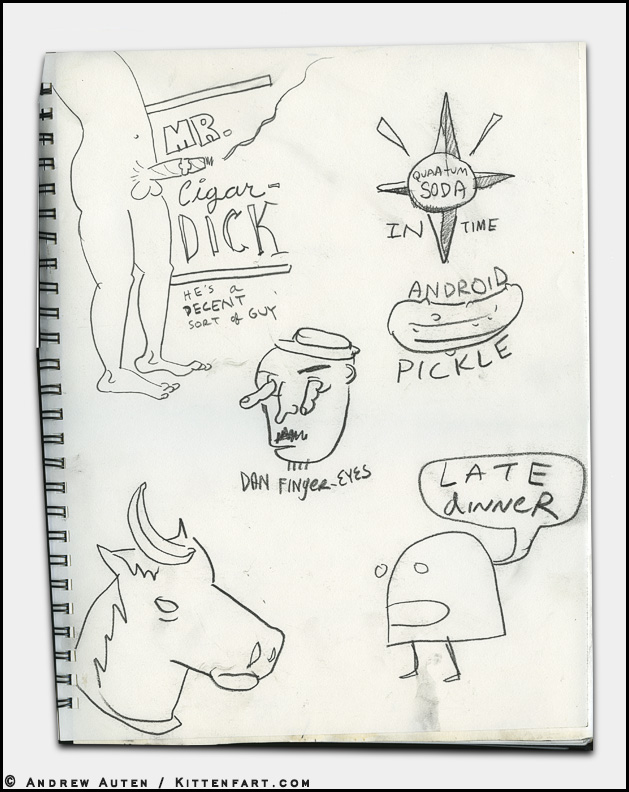 MR.
Cigar-
DICK
HE'S a
DECENT
SORT of GUY
QUAATUM
SODA
IN TIME
ANDROID
PICKLE
DAN FINger-EYES
LATE
dINNeR
© Andrew Auten / Kittenfart.com